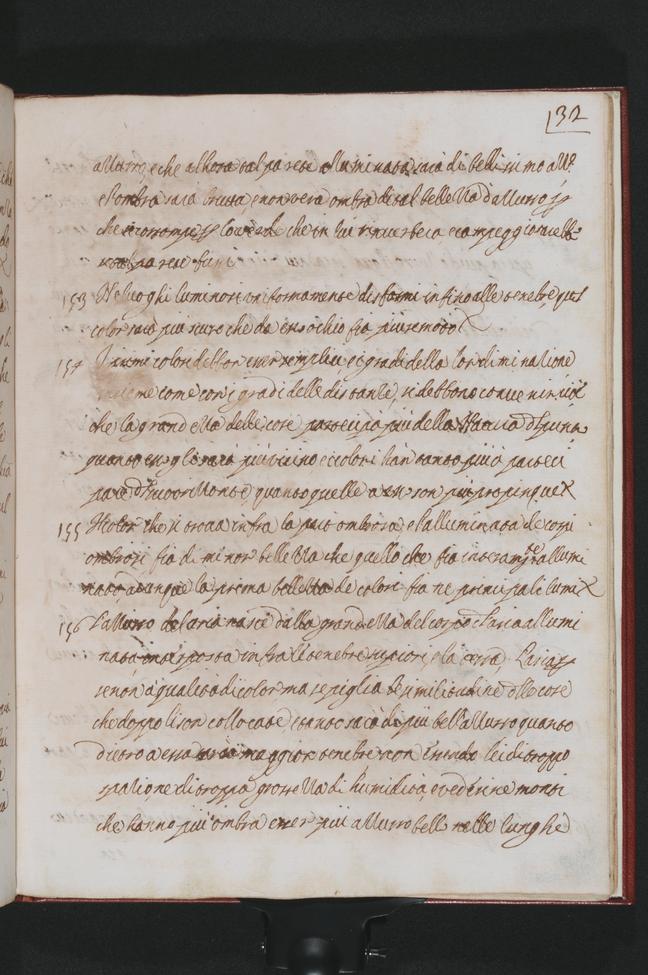 132
azurro, e che alhora tal parete alluminata sarà di bellissimo azz.º
e l'ombra sarà brutta, e non vera ombra di tal bellezza d'azurro p
che si corrompe p lo verde che in lui rinverbera,
153 Ne luoghi luminosi uniformamente disformi infino alle tenebre, quel
color sarà più scuro che da esso ochio fia più remoto
154 I primi colori debbon esser semplici e i gradi della lor diminutione
insieme con i gradi delle distantie, si debbono convenire, cioè
che la grandezza delle cose partecipa più della Natura d'l punto
quanto esse gli sarà più vicino e i colori han tanto più a parteci
pare d'l suo orizonte, quanto quelle a esso son più propinque
155 Il color che si trova infra la parte ombrosa e l'alluminata de corpi
ombrosi fia di minor bellezza che quello che fia interamte allumi
nato, adunque la prima bellezza de colori fia ne principali lumi
156 L'azurro de l'aria nasce dalla grandezza del corpo de l'aria allumi
nata interposta infra le tenebre superiori e la terra, L'aria p
se non à qualità di color ma se piglia le similitudine delle cose
che doppo li son collocate e tanto sarà di più bell'azurro quanto
dietro a essa sarà maggior tenebre non essendo lei di troppo
spatio, ne di troppa grossezza di humidità, e vedesi ne monti
che hanno più ombra esser più azurro bello nelle lunghe